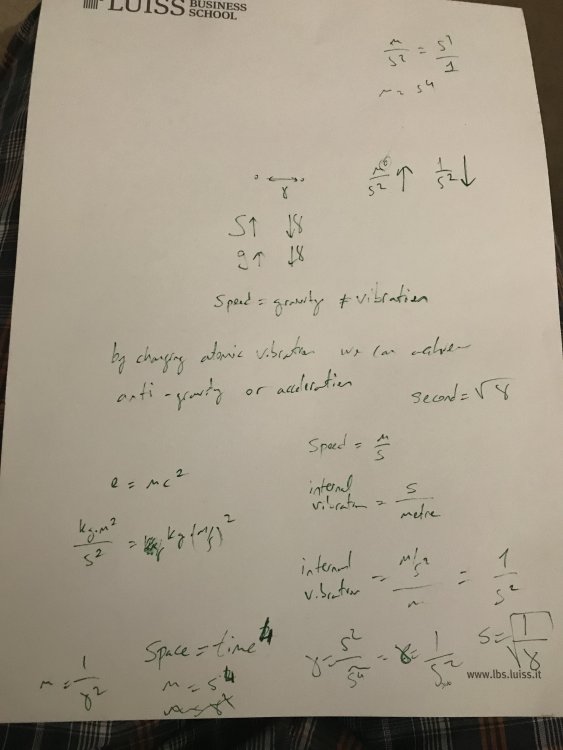 LUISS BUSINESS SCHOOL
m/s² = s²/1
m = s⁴
γ
m/s² ↑ 1/s² ↓
S↑ ↓γ
g↑ ↓γ
Speed = gravity ≠ vibration
by changing atomic vibration we can achieve
anti-gravity or acceleration
second = √γ
Speed = m/s
e = mc²
internal vibration = s/metre
kg·m²/s² = kg(m/s)²
internal vibration = m/s²/m = 1/s²
Space = time⁴
γ = s²/s⁴ = γ = 1/s²
s = √1/γ
m = 1/γ²
m = s⁴
www.lbs.luiss.it